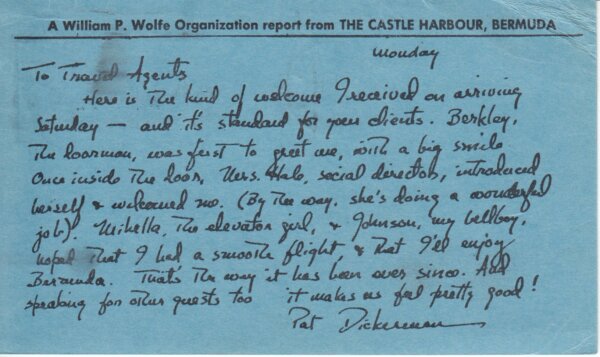 A William P. Wolfe Organization report from THE CASTLE HARBOUR, BERMUDA
Monday
To Travel Agents
Here is the kind of welcome I received on arriving
Saturday — and it's standard for your clients. Berkley,
the doorman, was first to greet me, with a big smile
Once inside the door, Mrs. Hale, social director, introduced
herself & welcomed me. (By the way, she's doing a wonderful
job). Mihella, the elevator girl, & Johnson, my bellboy,
hoped that I had a smooth flight, & that I'll enjoy
Bermuda. That's the way it has been ever since. And
speaking for other guests too it makes us feel pretty good!
Pat Dickerman